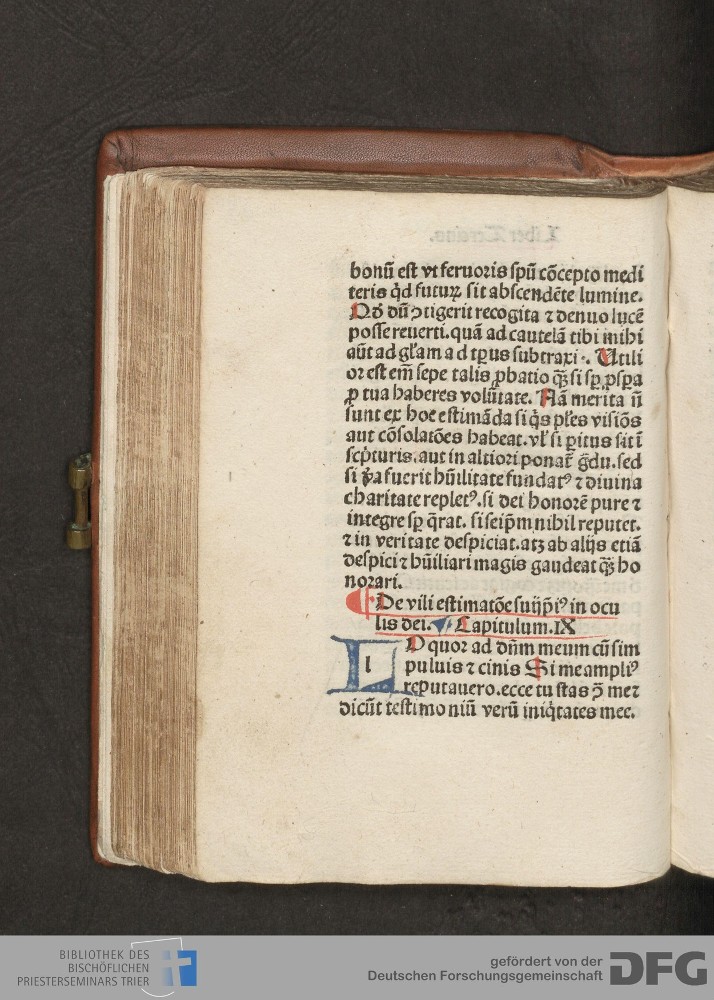 bonũ est vt feruoris spũ cõcepto medi
teris qͥd futuꝝ sit abscendẽte lumine.
Qḋ dũ ↄtigerit recogita ⁊ denuo lucẽ
posse reuerti. quã ad cautelã tibi mihi
aũt ad gl̃am a d tp̃us subtraxi. Utili
or est em̃ sepe talis ꝓbatio qͣ̃ꝫ si sꝑ ꝓsꝑa
ꝓ tua haberes volũtate. Nã merita ñ
sunt ex hoe estimãda si qͥs pl̃es visiõs
aut cõsolatões habeat. vl̓ si ꝑitus sit ĩ
scpͥturis. aut in altiori ponat᷑ gͣ̃du. sed
si ṽa fuerit hũilitate fundatꝰ ⁊ diuina
charitate repletꝰ. si dei honorẽ pure ⁊
integre sꝑ q̃rat. si seip̃m nihil reputet.
⁊ in veritate despiciat. atꝫ ab alijs etiã
despici ⁊ hũiliari magis gaudeat qͣ̃ꝫ ho
norari.
De vili estimatõe suijp̃iꝰ in ocu
lis dei. Capitulum. IX
l Oquor ad dñm meum cũ sim
puluis ⁊ cinis Si me ampliꝰ
reputauero. ecce tu stas ↄ̃ me ⁊
dicũt testimoniũ verũ iniqͥtates mee.
BIBLIOTHEK DES
BISCHÖFLICHEN
PRIESTERSEMINARS TRIER
gefördert von der
Deutschen Forschungsgemeinschaft DFG